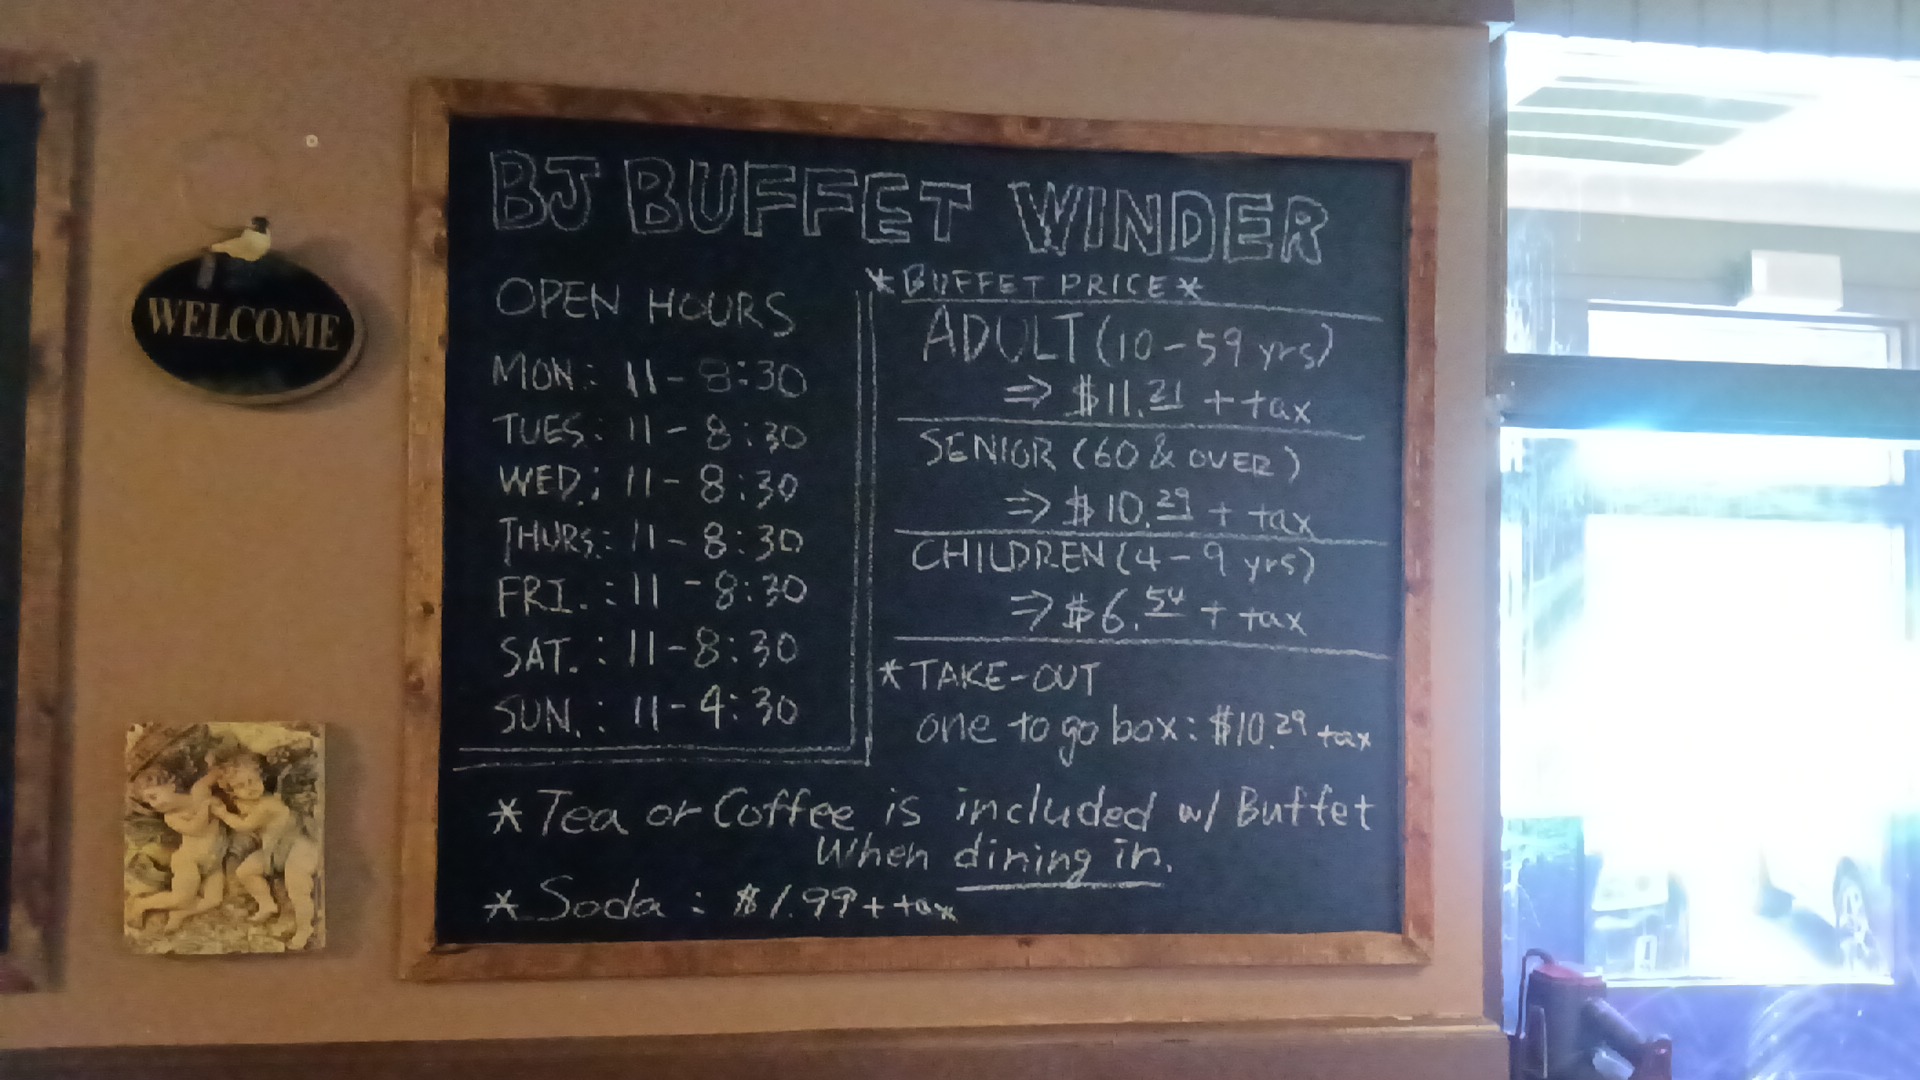 WELCOME
BJ BUFFET WINDER
OPEN HOURS
MON: 11-8:30
TUES: 11-8:30
WED: 11-8:30
THURS: 11-8:30
FRI.: 11-8:30
SAT.: 11-8:30
SUN.: 11-4:30
*BUFFET PRICE*
ADULT (10-59 yrs)
⇒ $11.21 + tax
SENIOR (60 & OVER)
⇒ $10.29 + tax
CHILDREN (4-9 yrs)
⇒ $6.54 + tax
*TAKE-OUT
one to go box: $10.29 tax
*Tea or Coffee is included w/ Buffet
When dining in.
*Soda: $1.99 + tax